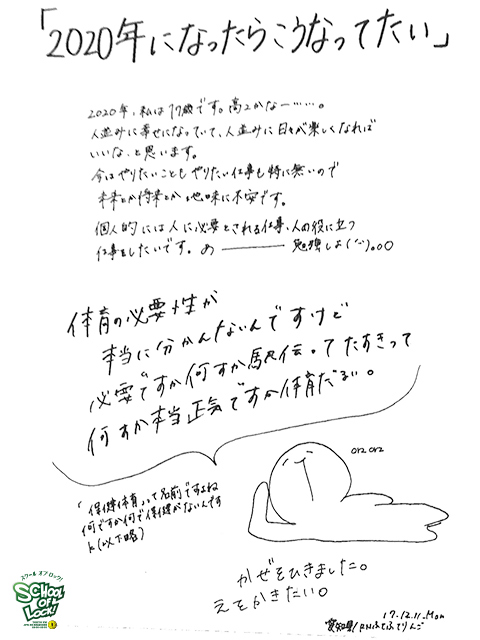 「2020年になったらこうなってたい」
2020年、私は17歳です。高2かなー……。
人並みに幸せになっていて、人並みに日々が楽しくなれば
いいな、と思います。
今はやりたいこともやりたい仕事も特に無いので
未来とか将来とか地味に不安です。
個人的には人に必要とされる仕事、人の役に立つ
仕事をしたいです。あ――― 勉強しよ
体育の必要性が
本当に分かんないんですけど
必要ですか何すか駅伝ってたすきって
何すか本当正気ですか体育だるい。
「保健体育」って名前ですよね
何ですか何で保健がないんです
k(以下略)
orz orz
かぜをひきました。
えをかきたい。
17.12.11.Mon
愛知県/RN
スクール オブ ロック!
SCHOOL
OF
LOCK!